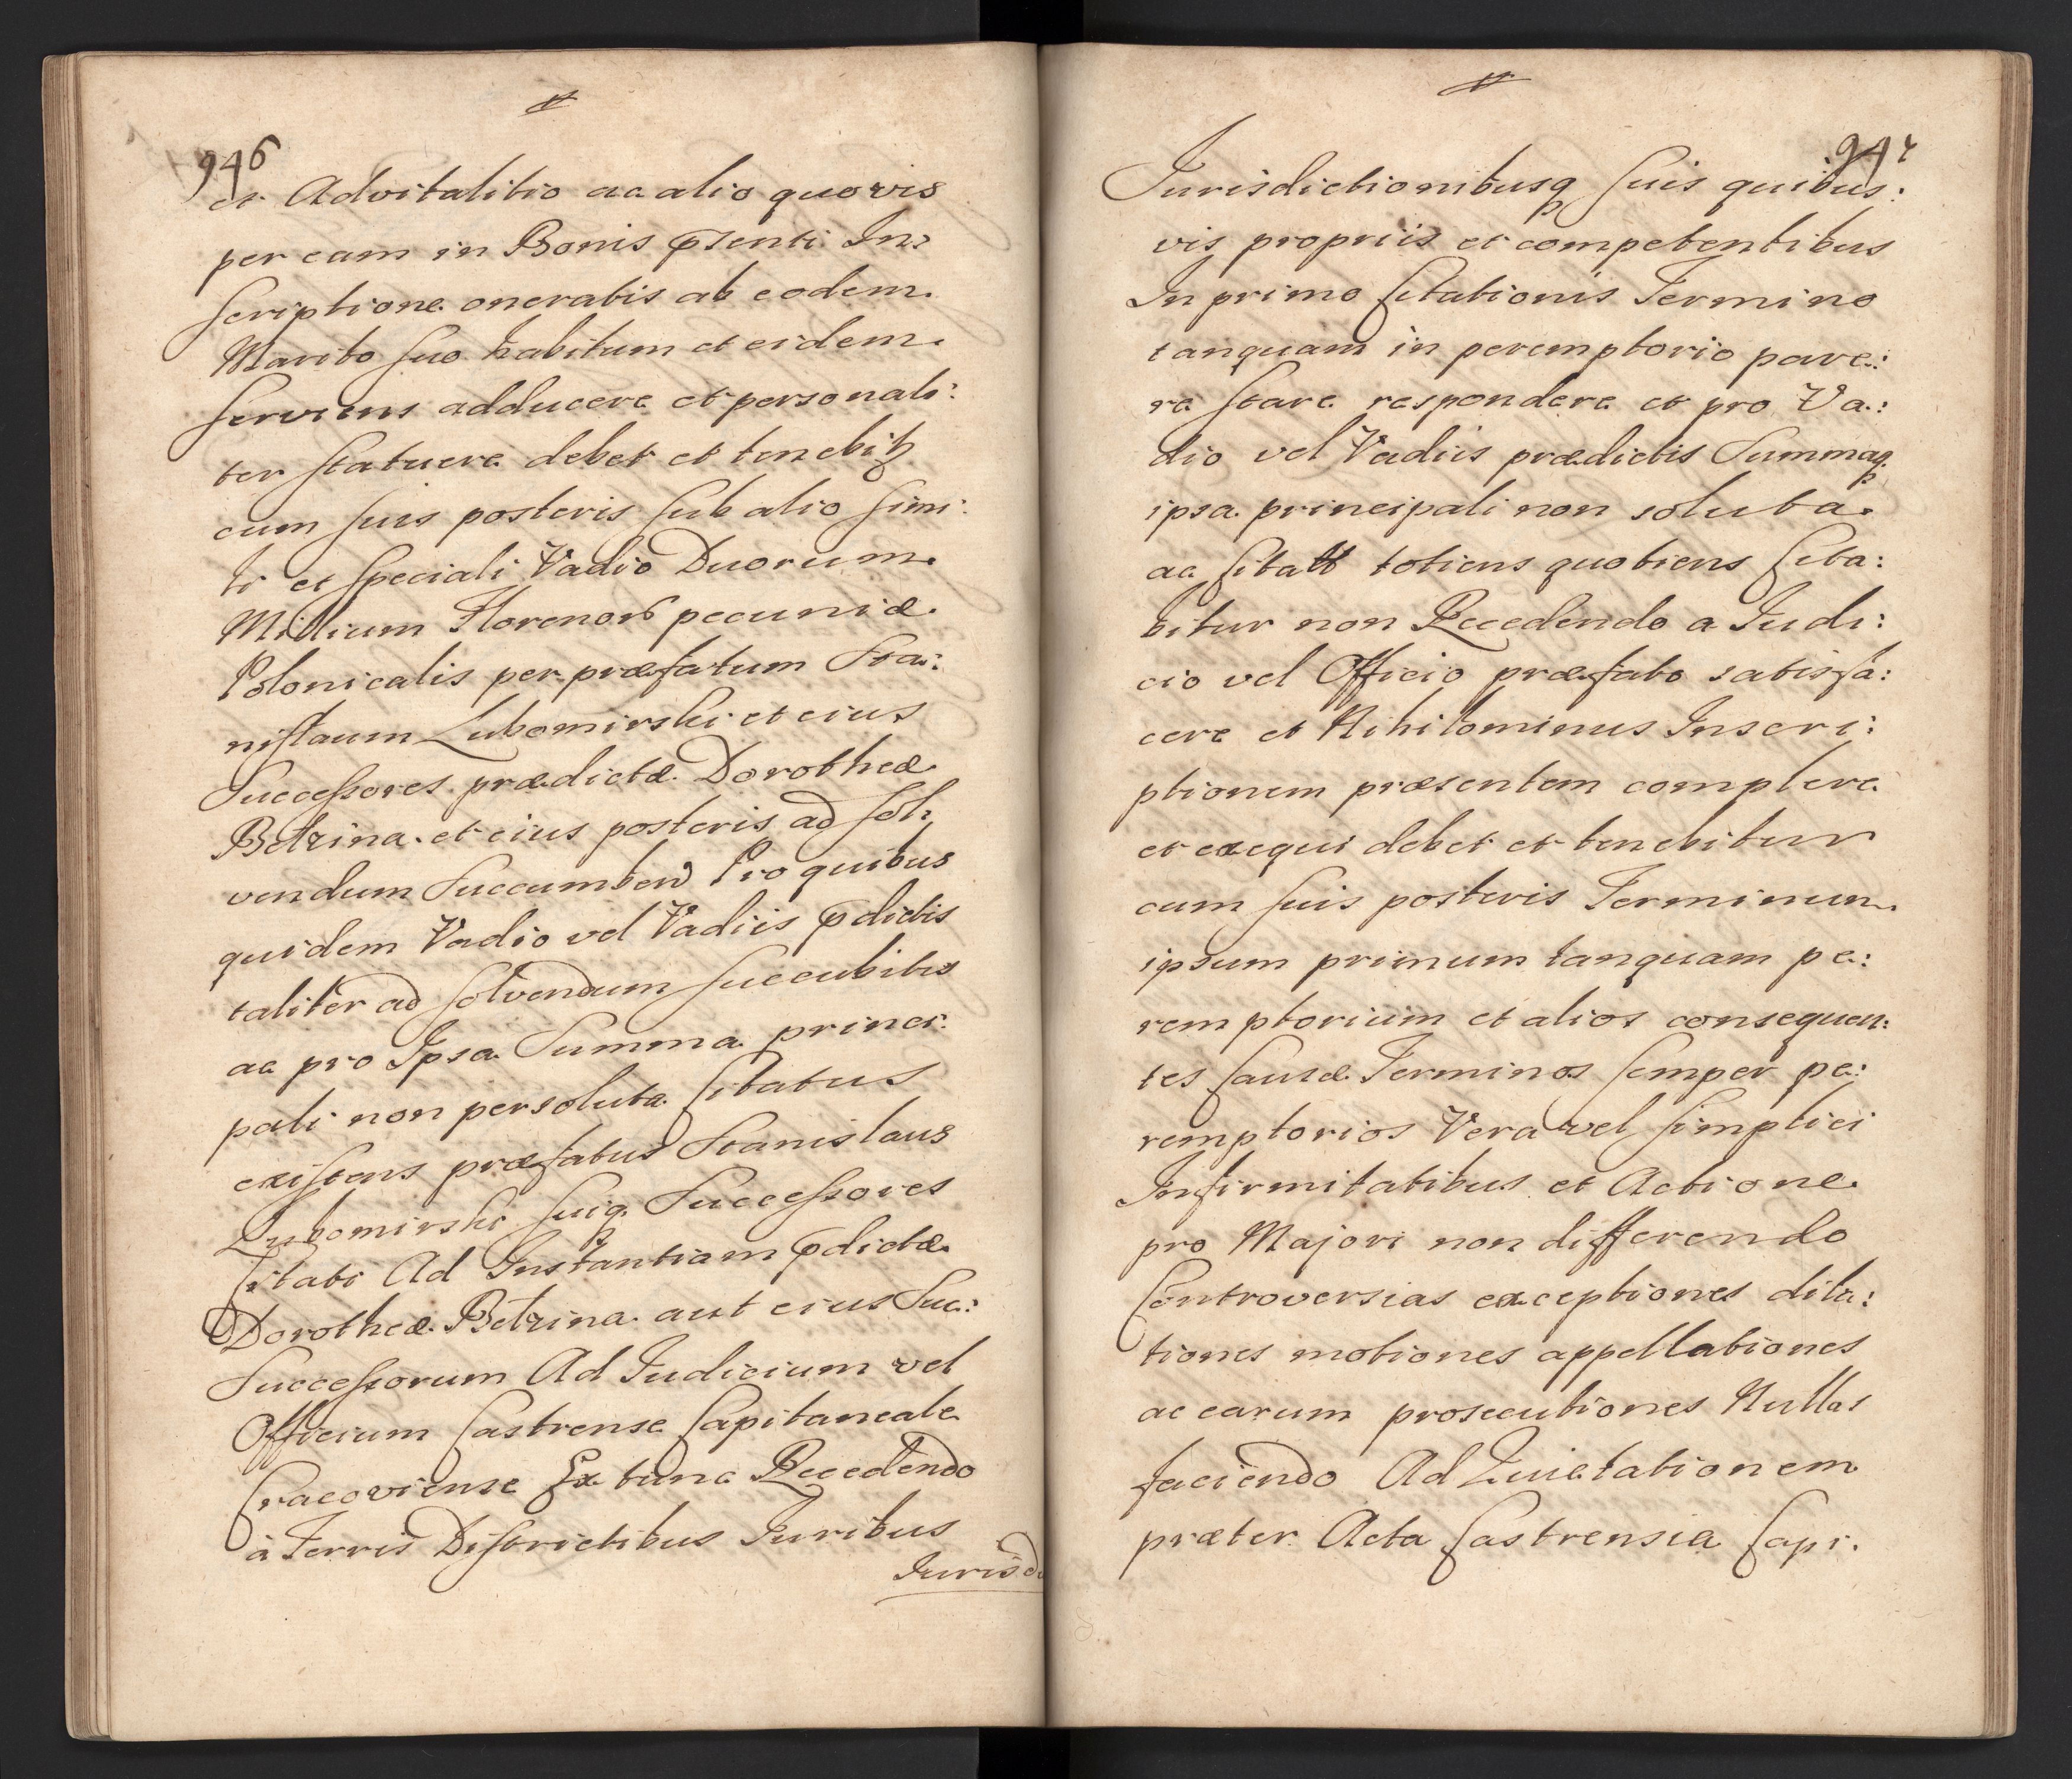 946
et Advitalitio ac alio quovis
per eam in Bonis pſenti In:
ſcriptione oneratis ab eodem
Marito ſuo habitum et eidem
ſerviens adducere et personali:
ter ſtatuere debet et tenebitꝶ
cum ſuis posteris ſub alio ſimi:
li et ſpeciali Vadio Duorum
Millium Florenorꝶ pecuniæ
Polonicalis per præfatum Sta:
niſlaum Lubomirski et eius
Succeſsores prædictæ Dorotheæ
Betzina et eius posteris ad ſol:
vendum Succumben Pro quibus
quidem Vadio vel Vadiis pdictis
taliter ad ſolvendum ſuccubitis
ac pro Ipsa Summa princi:
pali non persoluta Citatus
exiſtens præfatus Stanislaus
Lubomirski ſuiq Succeſsores
Citati Ad Instantiam pdictæ
Dorotheæ Betzina aut eius Suc:
Succeſsorum Ad Iudicium vel
Officium Castrense Capitaneale
Cracoviense Ex tunc Recedendo
à Terris Diſtrictibus Iuribus
Iurisd
947
Iurisdictionibusq ſuis quibus:
vis propriis et competentibus
In primo Citationis Termino
tanquam in peremptorio pare:
re ſtare respondere et pro Va:
dio vel Vadiis prædictis Summaq
ipsa principali non soluta
ac Citatt totiens quotiens Cita:
bitur non Recedendo a Iudi:
cio vel Officio præfato satisfa:
cere et Nihilominus Inscri:
ptionem præsentem complere
et exequi debet et tenebitur
cum ſuis posteris Terminum
ipsum primum tanquam pe:
remptorium et alios consequen:
tes Causæ Terminos ſemper pe:
remptorios Vera vel ſimplici
Infirmitatibus et Actione
pro Majori non differendo
Controversias exceptiones dila:
tiones motiones appellationes
ac earum prosecutiones Nullas
faciendo Ad Quietationem
præter Acta Castrensia Capi: